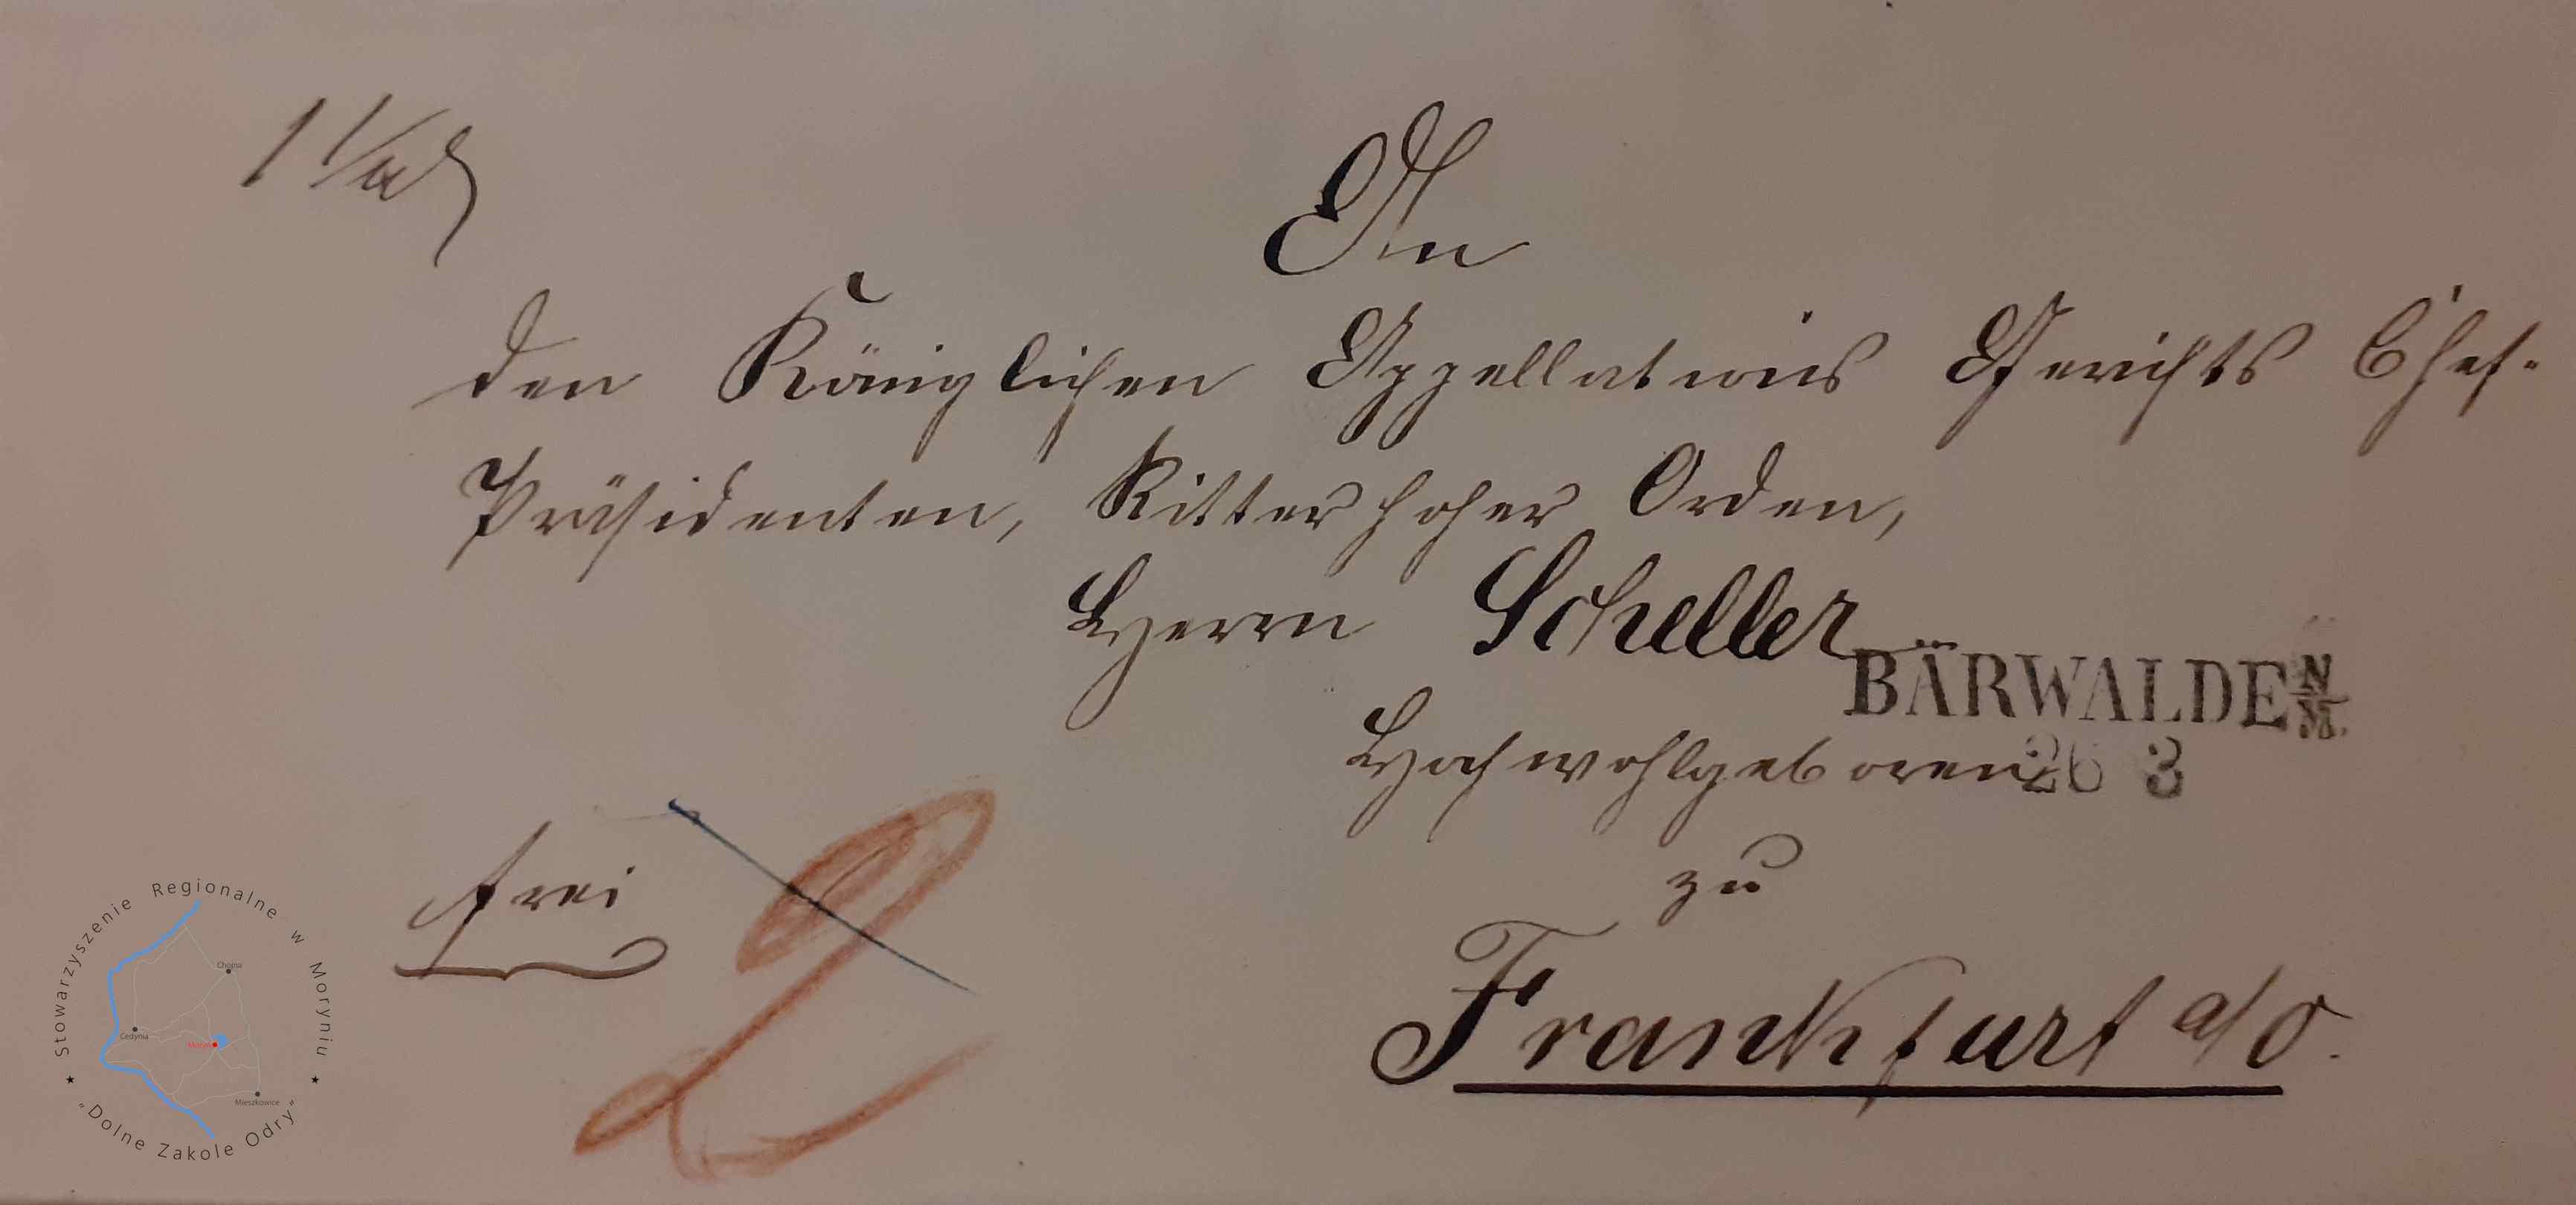 An
den Königlichen Appellations Gerichts Chef-
Präsidenten, Ritter hoher Orden,
Herrn Scheller
BÄRWALDE N/M.
Hochwohlgeboren
26 3
zu
frei
Frankfurt a/O.
Stowarzyszenie Regionalne w Moryniu
"Dolne Zakole Odry"
Chojna
Cedynia
Moryń
Mieszkowice